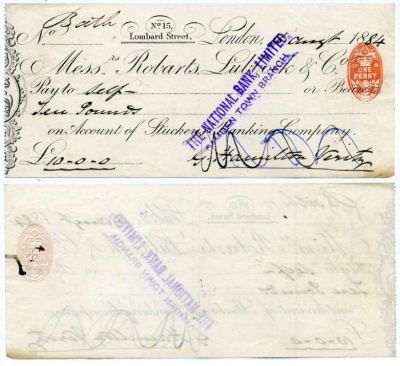 No Bath
No 15,
Lombard Street,
London, August 1884
Mess.rs Robarts, Lubbock & Co.
ONE
PENNY
Pay to self or Bearer
Ten Pounds
on Account of Stuckey's Banking Company.
£10-0-0
THE NATIONAL BANK, LIMITED
CAMDEN TOWN BRANCH
G. Hamilton Verity